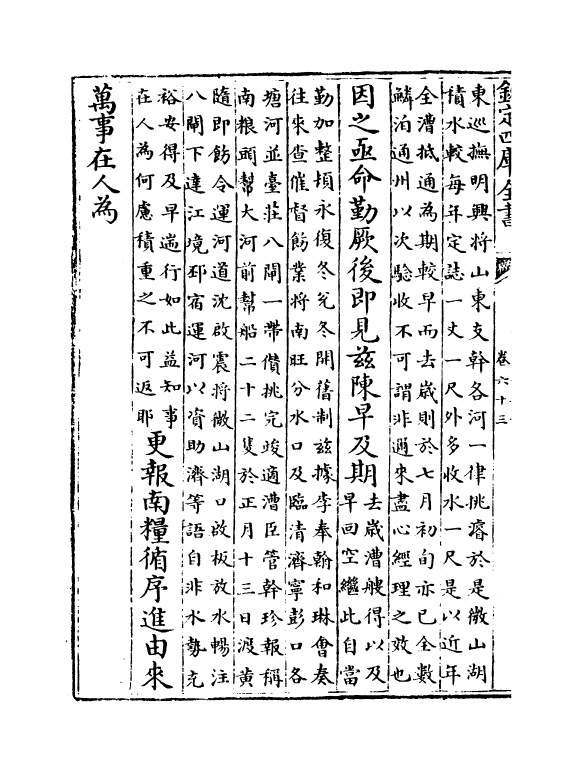 欽定四庫全書
卷六十三
東巡撫明興將山東支幹各河一律挑濬於是微山湖
積水較每年定誌一丈一尺外多收水一尺是以近年
全漕抵通為期較早而去歲則於七月初旬亦已全數
鱗泊通州以次驗收不可謂非邇來盡心經理之效也
因之亟命勤厥後即見兹陳早及期
去歲漕艘得以及
早回空繼此自當
勤加整頓永復冬兊冬開舊制兹據李奉翰和琳會奏
往來查催督飭業將南旺分水口及臨清濟寧彭口各
塘河並臺莊八閘一帶儹挑完竣適漕臣管幹珍報稱
南粮頭幫大河前幫船二十二隻於正月十三日渡黄
隨即飭令運河道沈啟震將微山湖口啟板放水暢注
八閘下達江境邳宿運河以資助濟等語自非水勢充
裕安得及早遄行如此益知事
在人為何慮積重之不可返耶
更報南糧循序進由來
萬事在人為